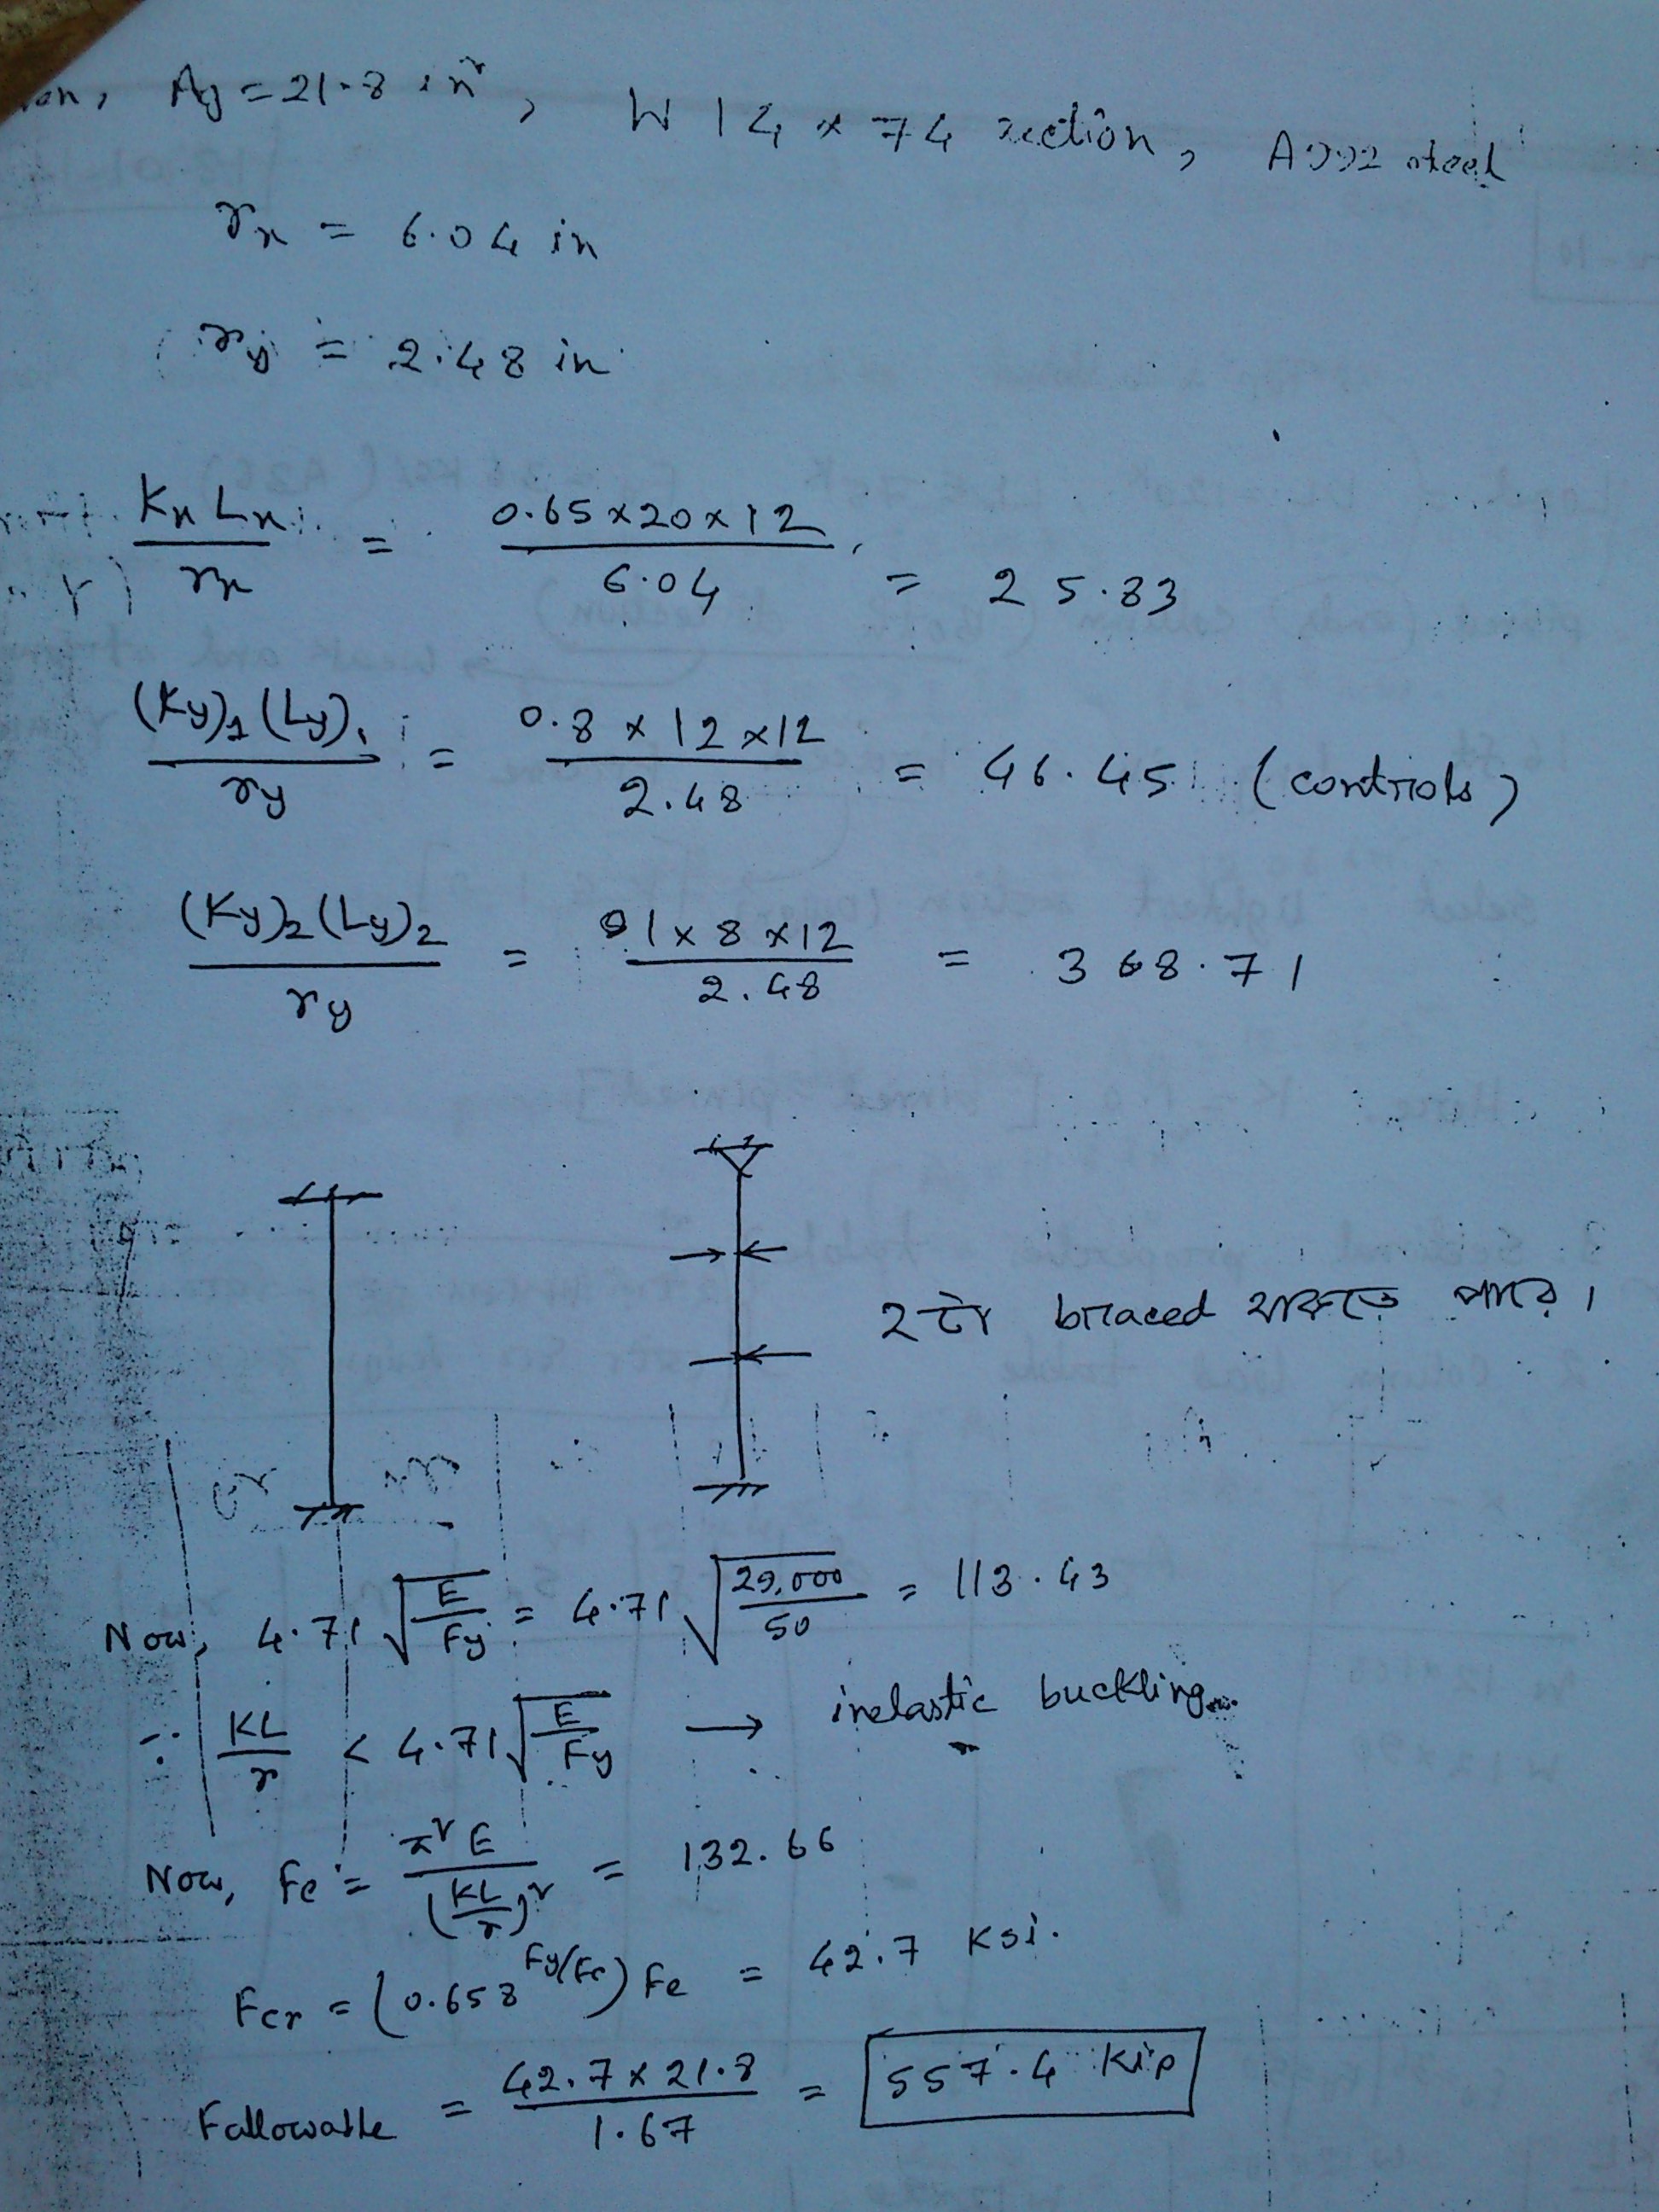 Ag = 21.8 in², W 14 x 74 section, A992 steel
rx = 6.04 in
ry = 2.48 in
KxLx/rx = 0.65 x 20 x 12/6.04 = 25.83
(Ky)1 (Ly)1/ry = 0.8 x 12 x 12/2.48 = 46.45 (controls)
(Ky)2 (Ly)2/ry = 1 x 8 x 12/2.48 = 38.71
২টা braced থাকতে পারে।
Now, 4.71 √(E/Fy) = 4.71 √(29,000/50) = 113.43
∵ KL/r < 4.71 √(E/Fy) → inelastic buckling.
Now, Fe = π²E/(KL/r)² = 132.66
Fcr = (0.658^(Fy/Fe)) Fe = 42.7 Ksi.
Fallowable = 42.7 x 21.8/1.67 = 557.4 Kip